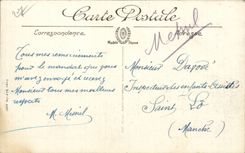 Carte Postale
Correspondance
Adresse
Menil
Tous mes remerciements
pour le mandat que vous
m'avez envoyé et recevez
Monsieur tous mes meilleurs
respects
M. Menil
Monsieur
Inspecteur des enfants
Saint Lo
(Manche)